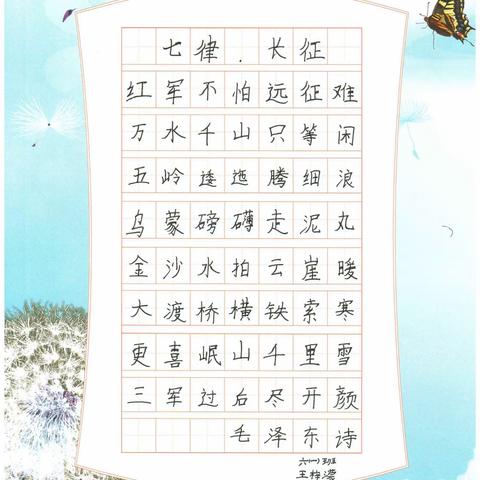 七律.长征
红军不怕远征难
万水千山只等闲
五岭逶迤腾细浪
乌蒙磅礴走泥丸
金沙水拍云崖暖
大渡桥横铁索寒
更喜岷山千里雪
三军过后尽开颜
毛泽东诗
六(一)班
王梓